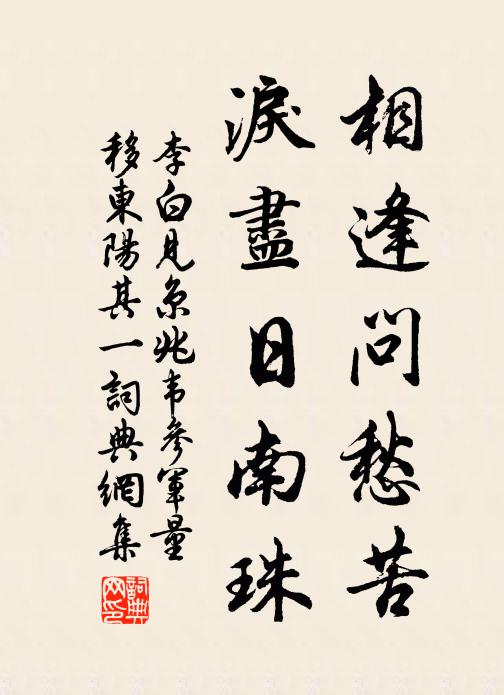 相逢問愁苦
淚盡日南珠
李白見京兆韦參軍量
移東陽其一詞典網集
詞典
网印